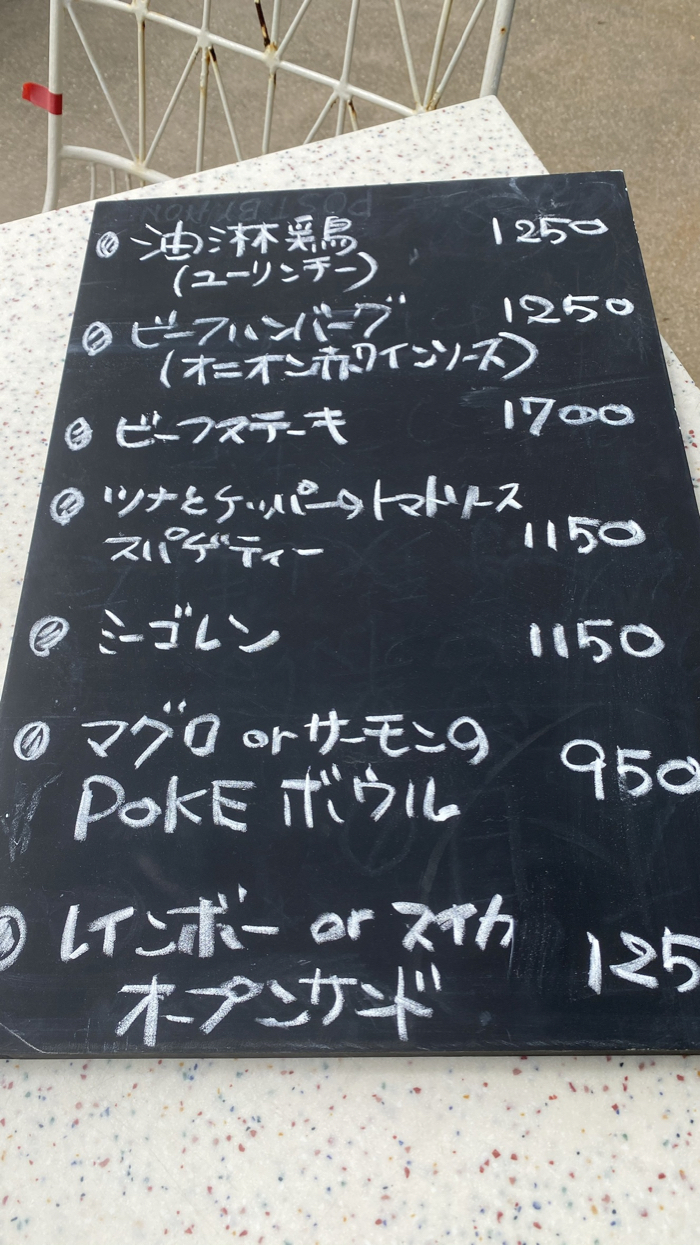 油淋鶏 1250
(ユーリンチー)
ビーフハンバーグ 1250
(オニオン赤ワインソース)
ビーフステーキ 1700
ツナとケッパーのトマトソース
スパゲティー 1150
ミーゴレン 1150
マグロ or サーモンの 950
POKE ボウル
レインボー or スイカ 125
オープンサンド